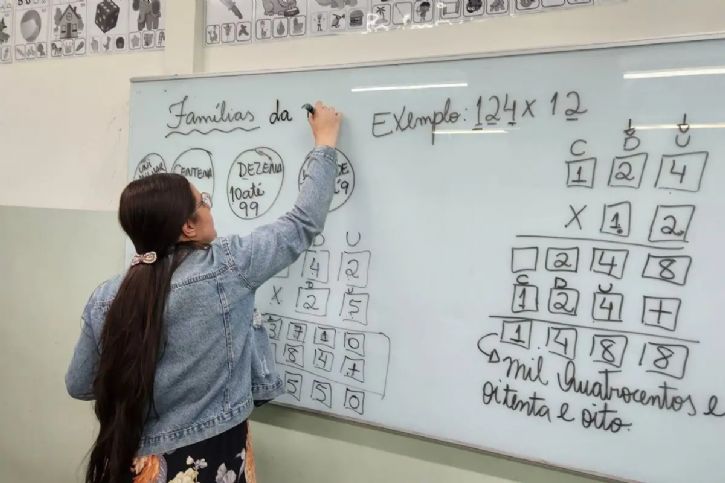 Famílias da
Exemplo: 124 x 12
ENTENA DEZENA
10 até 99
C D U
1 2 4
X 1 2
2 4 8
C D U
1 2 4 +
1 4 8 8
mil quatrocentos e
oitenta e oito.
U
4 2
X 2 5
3 7 1 0
8 4 +
5 5 0